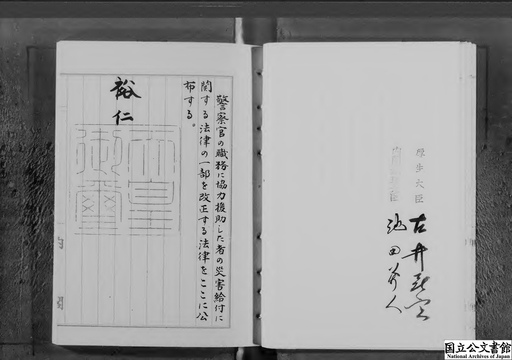 警察官の職務に協力援助した者の災害給付に
関する法律の一部を改正する法律をここに公
布する。
裕仁
天皇
御璽
厚生大臣
古井喜實
内閣総理大臣
池田勇人
国立公文書館
National Archives of Japan